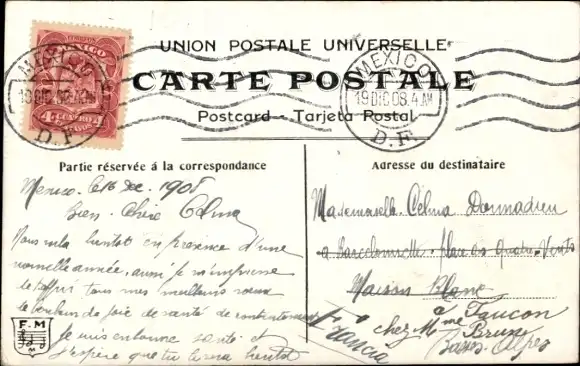 MEXICO
4 CENTAVOS
MEXICO
19 DIC 08. 4 AM
D. F.
MEXICO
19 DIC 08. 4 AM
D. F.
UNION POSTALE UNIVERSELLE
CARTE POSTALE
Postcard - Tarjeta Postal
Partie réservée á la correspondance
Mexico le 16 Dec. 1908
Bien chère Célma
Nous voila bientot en presence d'une
nouvelle année, aussi je m'empresse
de t'offrir tous mes meilleurs voeux
de bonheur de joie de santé de contentement
Je suis en bonne santé et
j'espère que tu bientot
F. M
Adresse du destinataire
Mademoiselle Célma Donnadieu
a Barcelonnette - place des Quatre-Vents
Maison Blanc
a Faucon
chez Mme Brune
Basses-Alpes
Francia